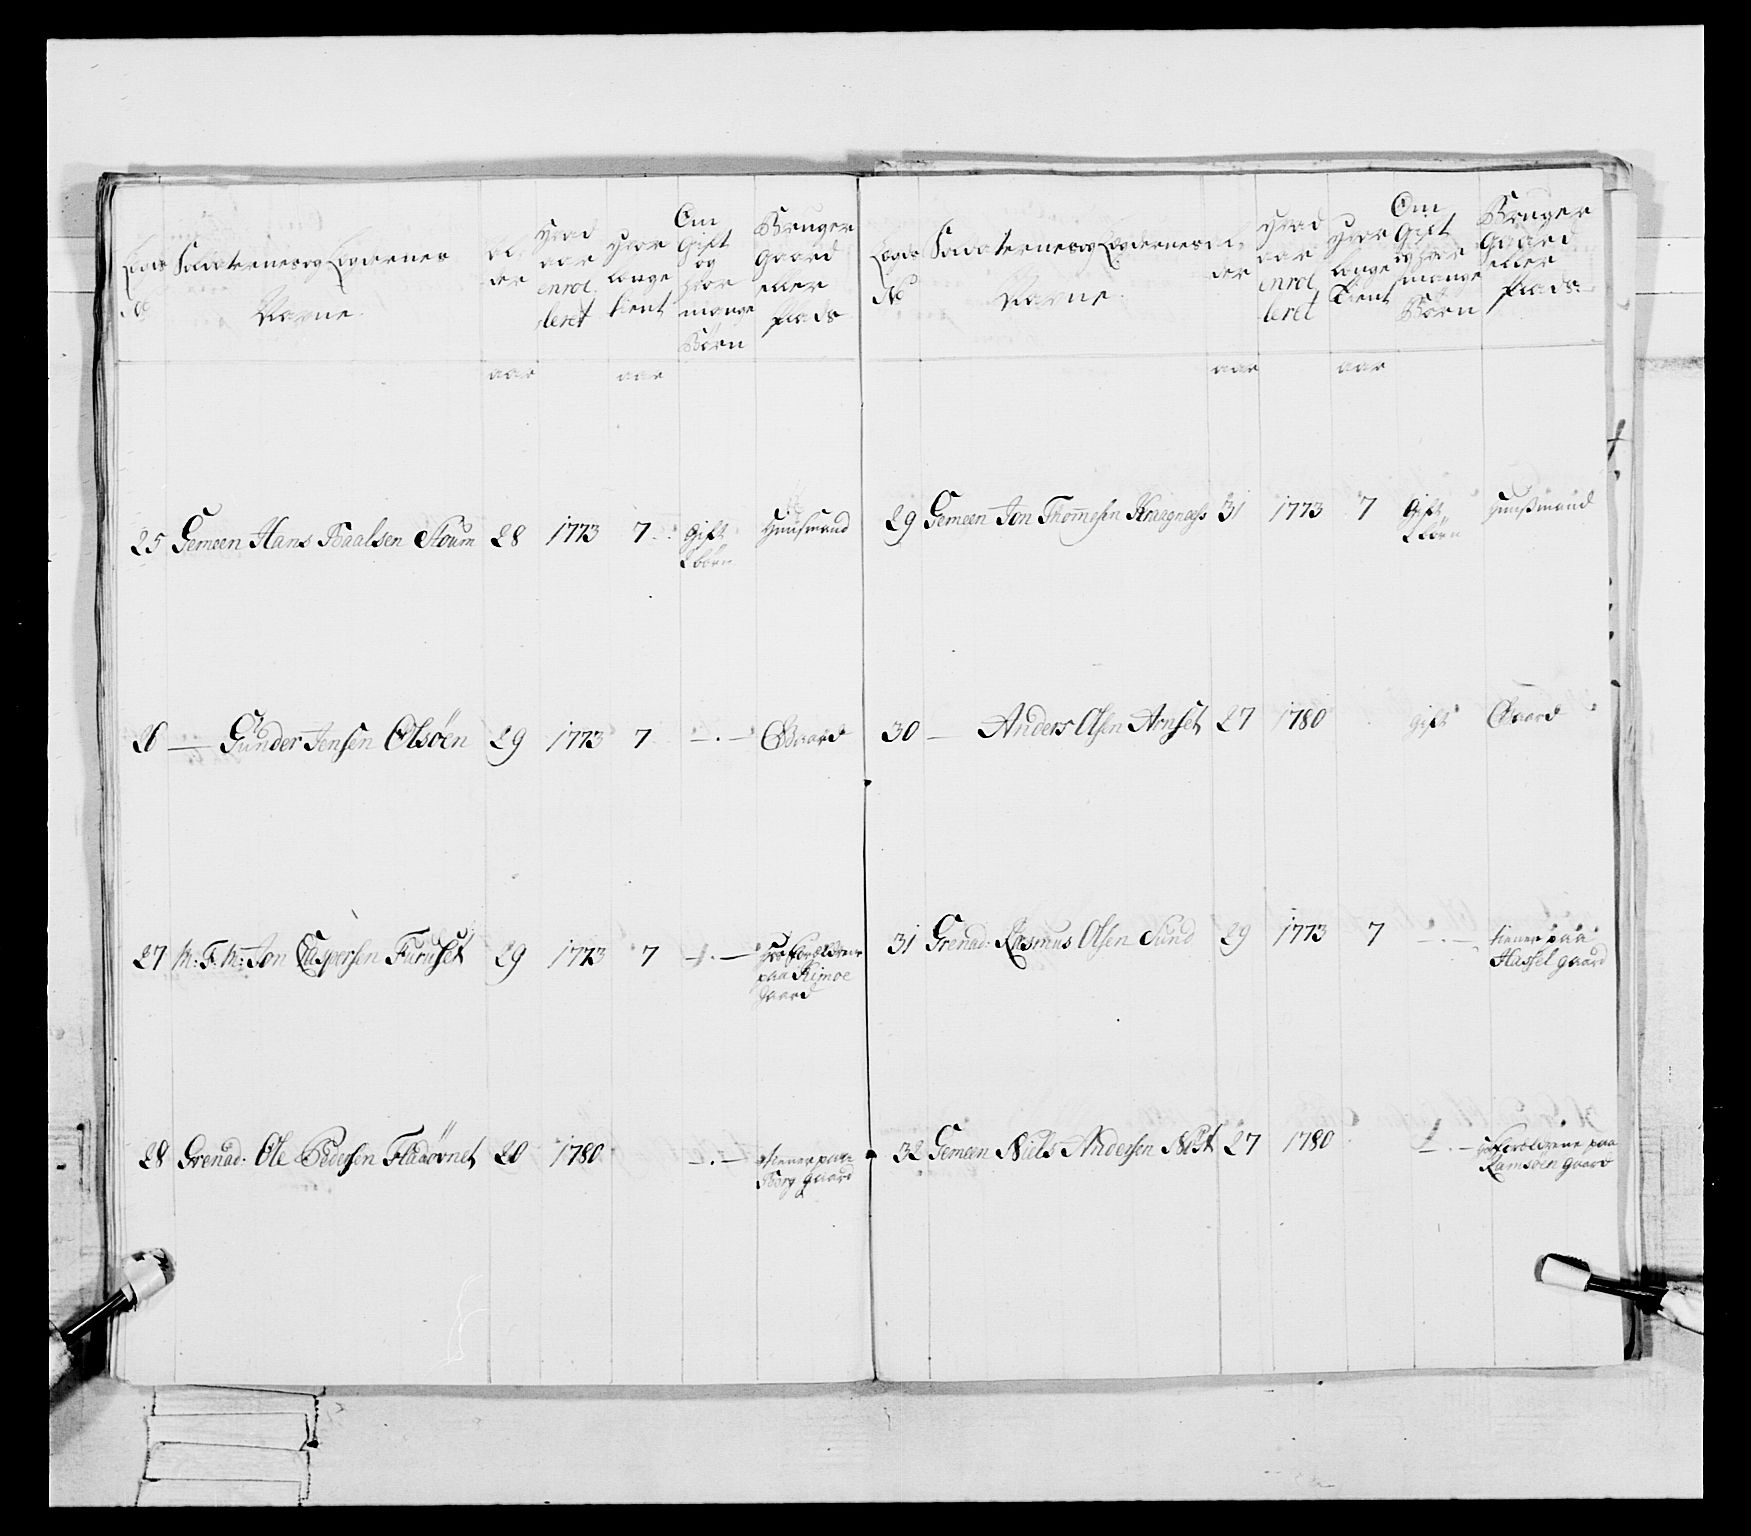 Legds No
Soldaternes og Legdernes Navne
Al der
Hvad aar enrol leret
Hvor længe tient
Om Gift og hvor mange Børn
Bruger Gaard eller Plads
aar
aar
25 Gemeen Hans Baalsen Stoum 28 1773 7 Gift 2 børn Huusmand
26 — Gunder Jensen Olsöen 29 1773 7 — . — Gaard
27 N: F. K: Jon Caspersen Furuset 29 1773 7 — . — hos Forældrene
paa Rimoe
gaard
28 Grenad: Ole Pedersen Fladövnet 20 1780 — . — tiener paa
Borg gaard
Legds No
Soldaternes og Legdernes Navne
Al der
Hvad aar enrol leret
Hvor længe tient
Om Gift og hvor mange Børn
Bruger Gaard eller Plads
aar
aar
29 Gemeen Jon Thomesen Kraagnæss 31 1773 7 Gift 2 børn Huusmand
30 — Anders Olsen Arnset 27 1780 gift Gaard
31 Grenad: Rasmus Olsen Sund 29 1773 7 — . — tiener paa
Hassel gaard
32 Gemeen Niels Andersen 27 1780 — . — hos Forældrene paa
Ramsöen gaard